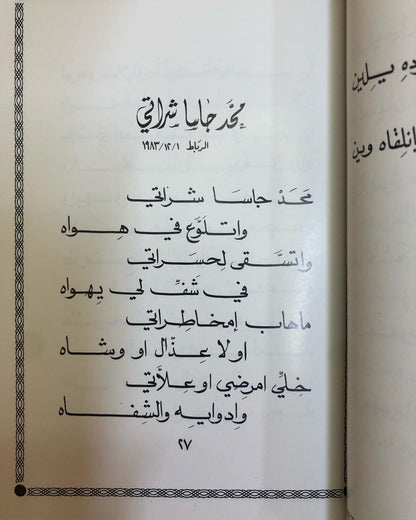 محَّد جاسا شراتي
الرباط ١٩٨٣/١٢/١
مَحَدْ جاسَا شَراتي
واتلَوَّع في هواه
واتسَّقى لِحسَراتي
في شَفِّ لي يهواه
ماهاب اِمخاطِراتي
اولا عِذّال او وشاه
خِلِّي امرضِي اوعِلاَّتي
وِادوايه والشِفاه
٢٧
ده يلين
إنلِقاه وين